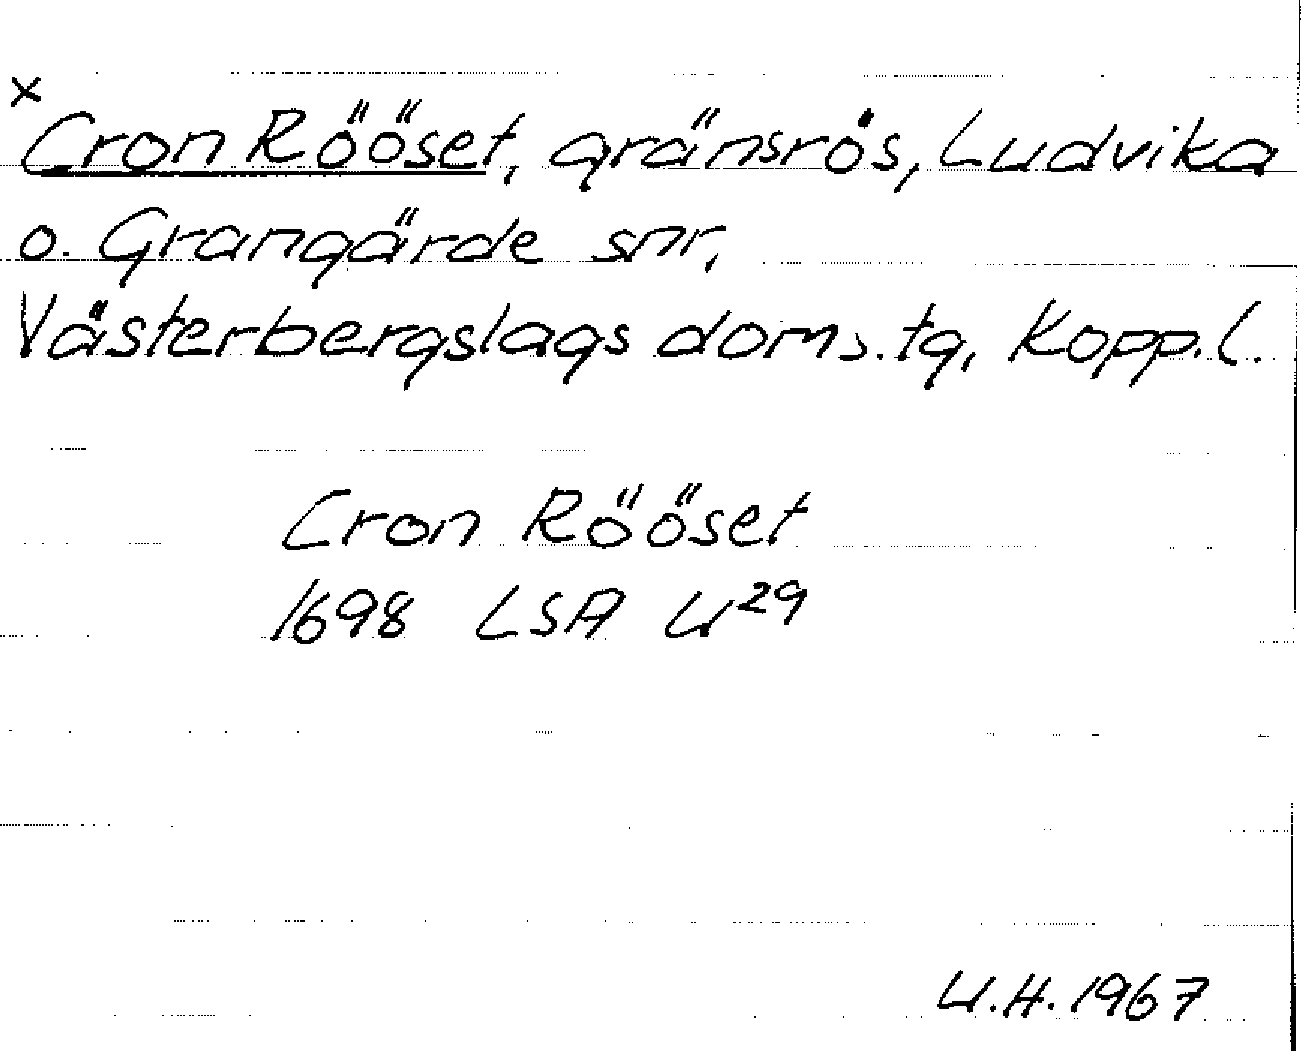 x
Cron Rööset, gränsrös, Ludvika
o. Grangärde snr,
Västerbergslags doms.tg, Kopp.l.
Cron Rööset
1698 LSA U²⁹
U.H. 1967